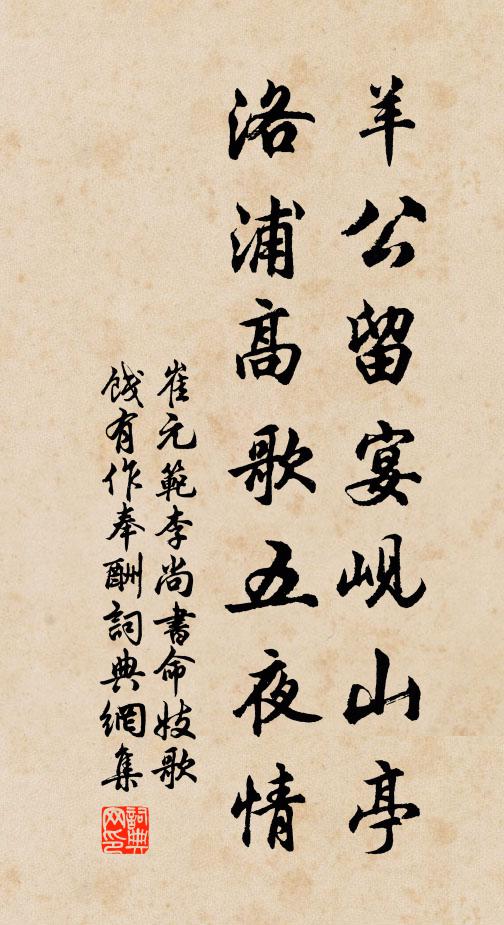 羊公留宴峴山亭
洛浦高歌五夜情
崔元範李尚書命妓歌
餞有作奉酬詞典網集
詞典网印